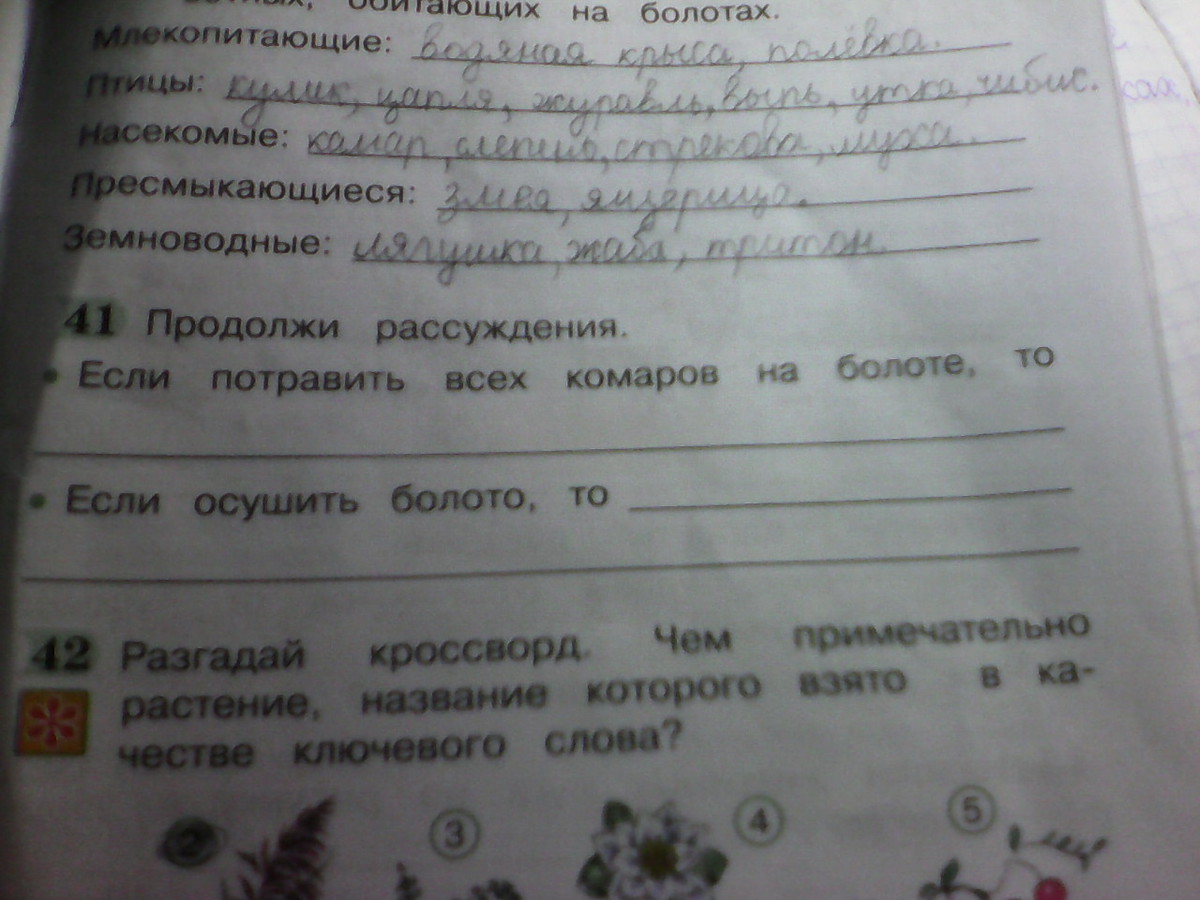 обитающих на болотах.
Млекопитающие: водяная крыса, полёвка.
Птицы: кулик, цапля, журавль, выпь, утка, чибис.
Насекомые: камар, слепни, стрекоза, муха.
Пресмыкающиеся: змея, ящерица.
Земноводные: лягушка, жаба, тритон.
41 Продолжи рассуждения.
• Если потравить всех комаров на болоте, то
• Если осушить болото, то
42 Разгадай кроссворд. Чем примечательно
растение, название которого взято в ка-
честве ключевого слова?
2 3 4 5